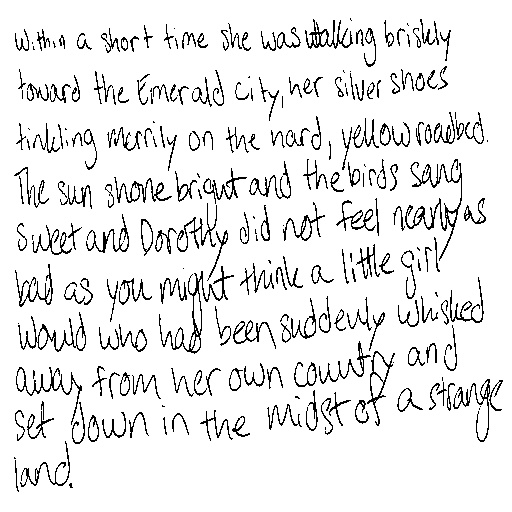 Within a short time she was walking briskly
toward the Emerald City, her silver shoes
tinkling merrily on the hard, yellow roadbed.
The sun shone bright and the birds sang
sweet and Dorothy did not feel nearly as
bad as you might think a little girl
would who had been suddenly whisked
away from her own country and
set down in the midst of a strange
land.